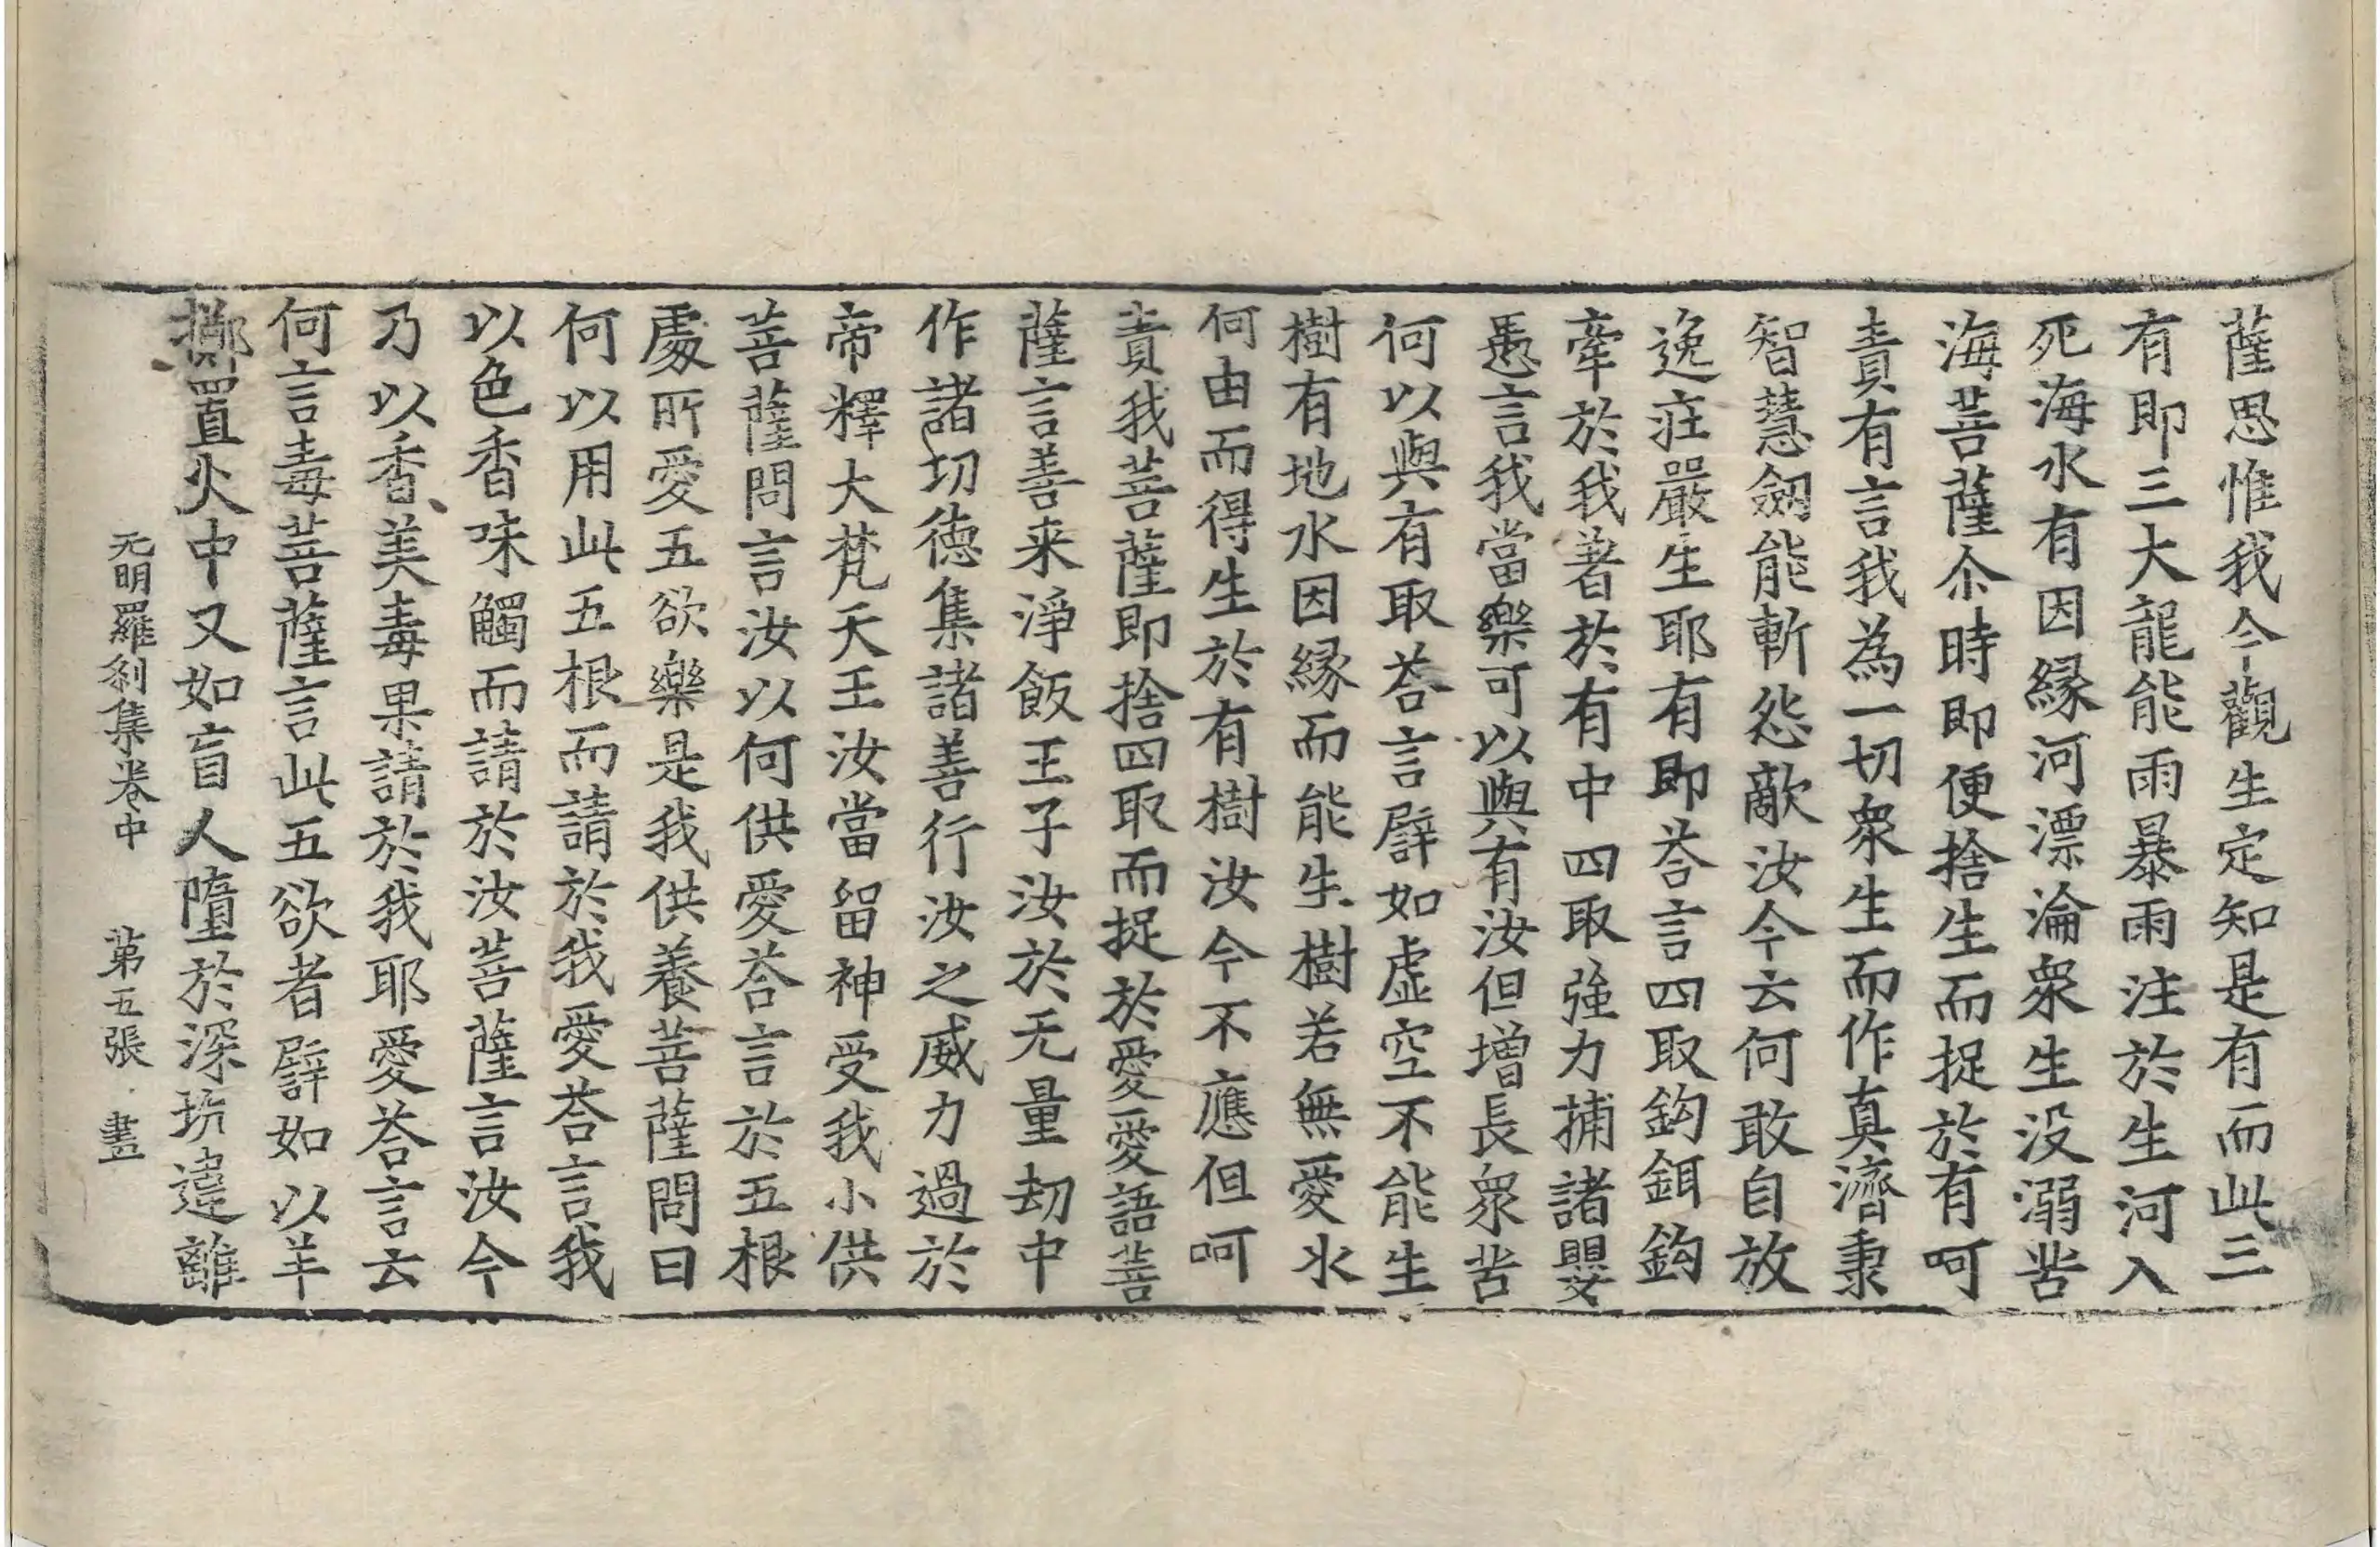 薩思惟我今觀生定知是有而此三
有即三大龍能雨暴雨注於生河入
死海水有因縁河漂淪衆生没溺苦
海菩薩尒時即便捨生而捉於有呵
責有言我為一切衆生而作真濟秉
智慧劒能斬怨敵汝今云何敢自放
逸莊嚴生耶有即荅言四取鈎鉺鈎
牽於我著於有中四取強力捕諸嬰
愚言我當樂可以與有汝但增長衆苦
何以與有取荅言譬如虛空不能生
樹有地水因縁而能生樹若無愛水
何由而得生於有樹汝今不應但呵
責我菩薩即捨四取而捉於愛愛語菩
薩言善来淨飯王子汝於无量劫中
作諸切德集諸善行汝之威力過於
帝釋大梵天王汝當留神受我小供
菩薩問言汝以何供愛荅言於五根
處所愛五欲樂是我供養菩薩問曰
何以用此五根而請於我愛荅言我
以色香味觸而請於汝菩薩言汝今
乃以香美毒果請於我耶愛荅言云
何言毒菩薩言此五欲者譬如以羊
擲置火中又如盲人墮於深坑違離
无明羅剎集卷中　第五張　畫